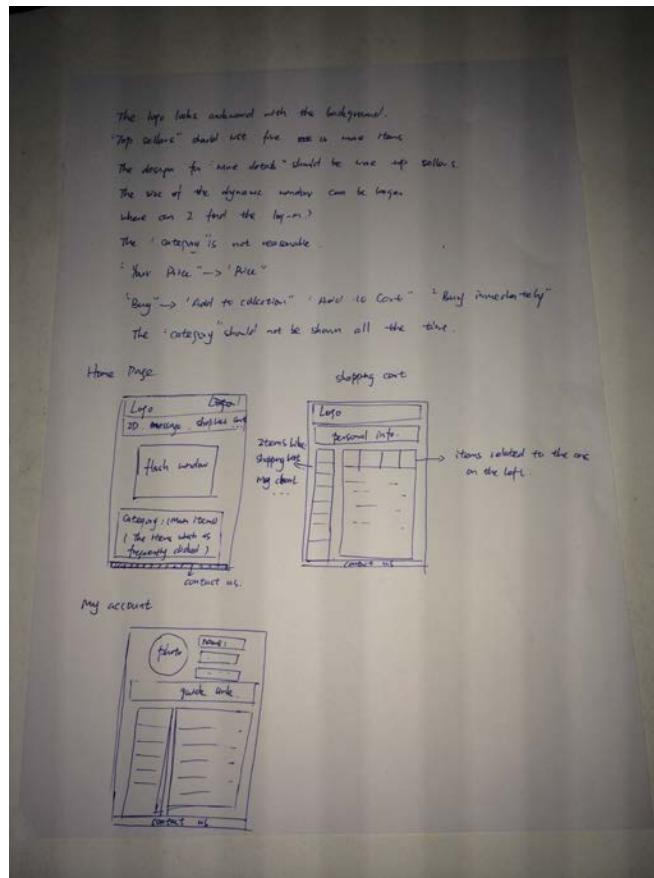 The logo looks awkward with the background.
"Top sellers" should list five or more items
The design for "more details" should be more top sellers.
The size of the dynamic window can be larger
where can I find the log-in?
The "category" is not reasonable.
"Your Price" --> "Price"
"Buy" --> "Add to collection" "Add to Cart" "Buy immediately"
The "category" should not be shown all the time.
Home Page
Logo
ID. message. shopping cart
flash window
Category: (Main items)
( The items which is
frequently clicked )
contact us.
shopping cart
Logo
personal info.
Items like
shopping cart
my account
...
items related to the one
on the left.
contact us
My account
photo
Name:
quick link
contact us